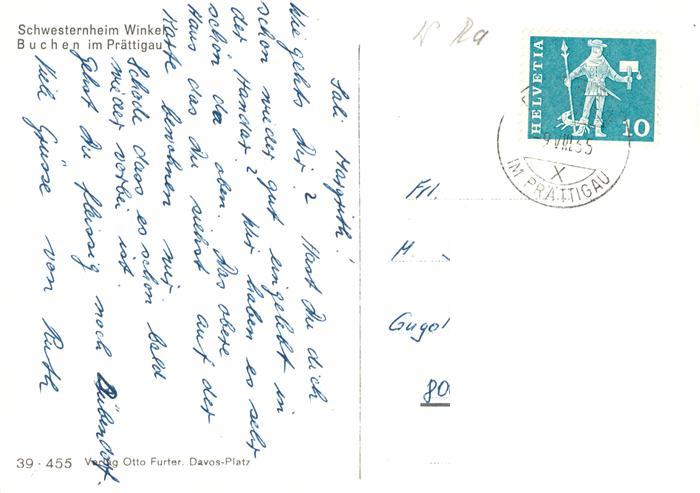 Schwesternheim Winkel
Buchen im Prättigau
Sali Margrith!
Wie gehts Dir? Hast du dich
schon wieder gut eingelebt in
der Handar? Wir haben es sehr
schön da oben. Das obere
Haus das du siehst auf der
Karte bewohnen wir.
Schade dass es schon bald
wieder vorbei ist.
Gehst du fleissig noch Dübendorf.
Viele Grüsse von Ruth
39 - 455 Verlag Otto Furter. Davos-Platz
HELVETIA
10
VIII.65
X
IM PRÄTTIGAU
Frl.
M.
Gugol
80